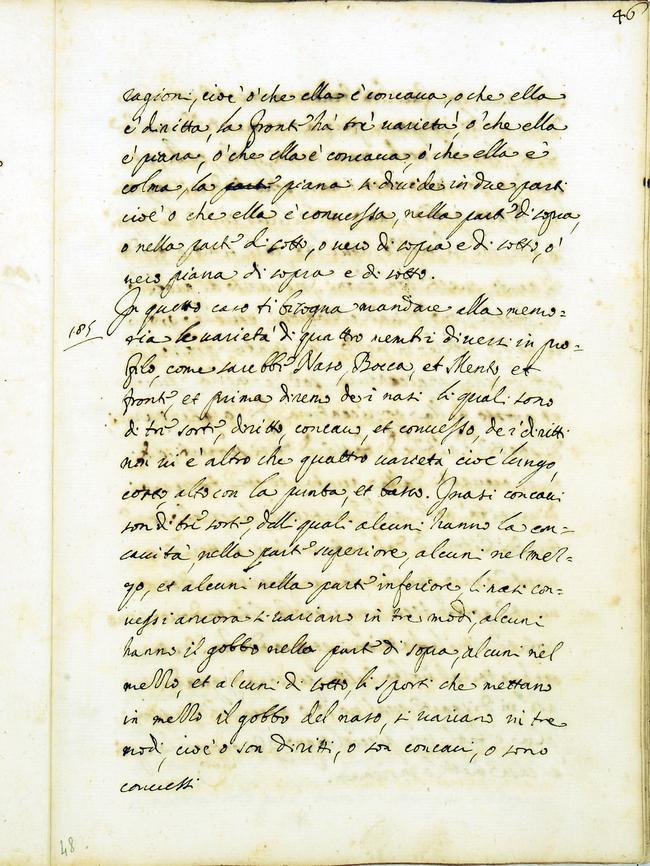 46
ragioni, cioè ò che ella è concaua, o che ella
è diritta, la front.e há trè uarietà, ò che ella
è piana, ò che ella è concaua, ò che ella è
colma, la part.e piana si diuide in due parti
cioè o che ella è conuessa, nella part.e di sopra,
o nella part.e di sotto, o uero di sopra e di sotto, ò
uero piana di sopra e di sotto.
185 In questo caso ti bisogna mandare alla memo=
ria le uarietà di quattro membri diuersi in pro=
filo, come sarebbe Naso, Bocca, et Mento, et
front.e, et prima diremo de i nasi li quali sono
di tre sorte, diritto, concauo, et conuesso, de i diritti
non ui è altro che quattro uarietà, cioè lungo,
corto, alto con la punta, et basso. I nasi concaui
son di tre sorte, delli quali alcuni hanno la con=
cauità, nella part.e superiore, alcuni nel mez=
zo, et alcuni nella part.e inferiore, li nasi con=
uessi ancora si uariano in tre modi, alcuni
hanno il gobbo nella part.e di sopra, alcuni nel
mezzo, et alcuni di sotto, li sporti che mettano
in mezzo il gobbo del naso, si uariano in tre
modi, cioè o son diritti, o son concaui, o sono
conuessi
48